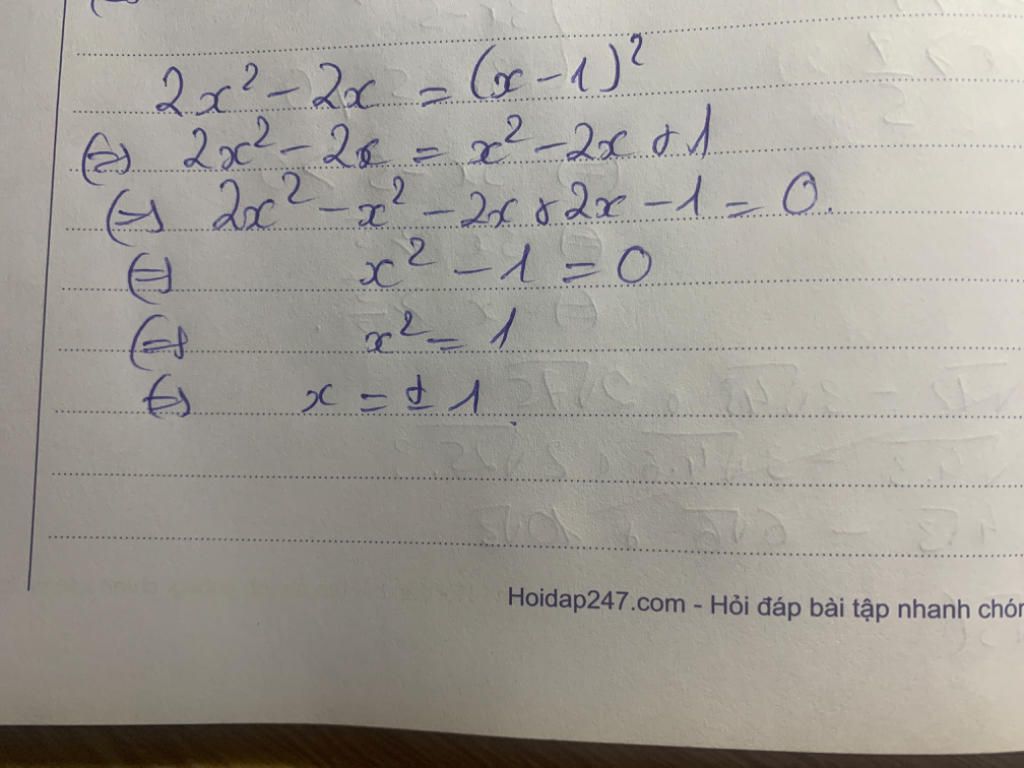 2x² - 2x = (x - 1)²
(=) 2x² - 2x = x² - 2x + 1
(=) 2x² - x² - 2x + 2x - 1 = 0.
(=) x² - 1 = 0
(=) x² = 1
(=) x = ± 1.
Hoidap247.com - Hỏi đáp bài tập nhanh chón